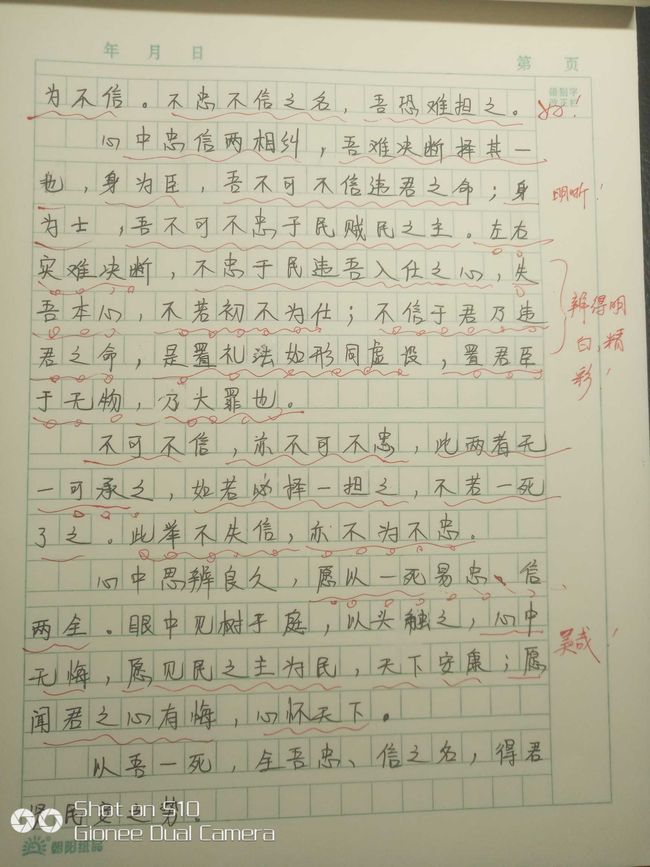 年 月 日
第 页
错别字
改正栏
为不信。不忠不信之名，吾恐难担之。
好！
心中忠信两相纠，吾难决断择其一
也，身为臣，吾不可不信违君之命；身
明晰！
为士，吾不可不忠于民贼民之主。左右
实难决断，不忠于民违吾入仕之心，失
吾本心，不若初不为仕；不信于君乃违
辨得明
君之命，是置礼法如形同虚设，置君臣
白，精
彩！
于无物，乃大罪也。
不可不信，亦不可不忠，此两者无
一可承之，如若必择一担之，不若一死
了之。此举不失信，亦不为不忠。
心中思辨良久，愿以一死易忠、信
两全。眼中见树于庭，以头触之，心中
无悔，愿见民之主为民，天下安康；愿
闻君之心有悔，心怀天下。
以吾一死，全吾忠、信之名，得君
民安之势。
Shot on S10
Gionee Dual Camera
朝阳纸品